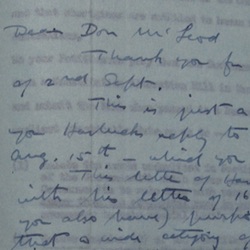 Dear Don McLeod
Thank you fo
of 2nd Sept.
This is just a
you Hasluck's reply to
Aug. 15th – which you
This letter of Has
with his letter of 16
you also have)
that a wide